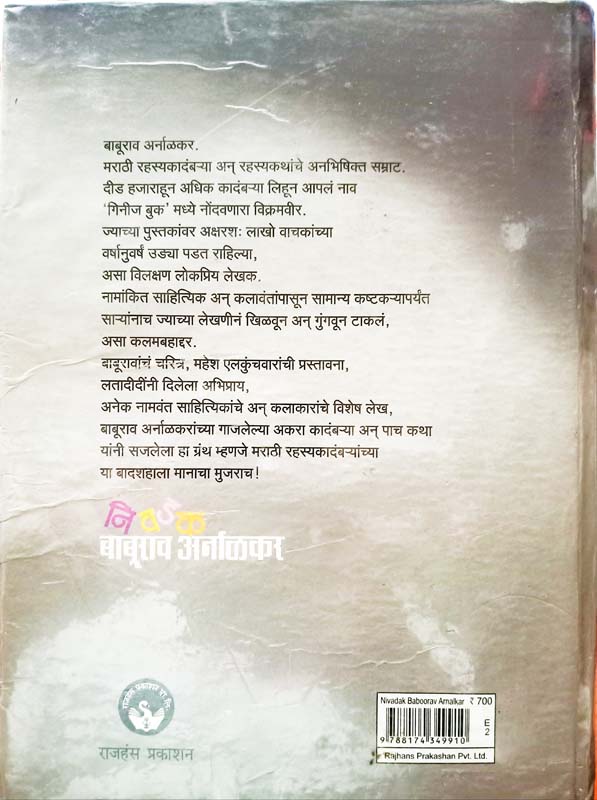 बाबूराव अर्नाळकर.
मराठी रहस्यकादंबऱ्या अन् रहस्यकथांचे अनभिषिक्त सम्राट.
दीड हजाराहून अधिक कादंबऱ्या लिहून आपलं नाव
‘गिनीज बुक’ मध्ये नोंदवणारा विक्रमवीर.
ज्याच्या पुस्तकांवर अक्षरशः लाखो वाचकांच्या
वर्षानुवर्षं उड्या पडत राहिल्या,
असा विलक्षण लोकप्रिय लेखक.
नामांकित साहित्यिक अन् कलावंतांपासून सामान्य कष्टकऱ्यापर्यंत
साऱ्यांनाच ज्याच्या लेखणीनं खिळवून अन् गुंगवून टाकलं,
असा कलमबहाद्दर.
बाबूरावांचं चरित्र, महेश एलकुंचवारांची प्रस्तावना,
लतादीदींनी दिलेला अभिप्राय,
अनेक नामवंत साहित्यिकांचे अन् कलाकारांचे विशेष लेख,
बाबूराव अर्नाळकरांच्या गाजलेल्या अकरा कादंबऱ्या अन् पाच कथा
यांनी सजलेला हा ग्रंथ म्हणजे मराठी रहस्यकादंबऱ्यांच्या
या बादशहाला मानाचा मुजराच!
निवडक
बाबूराव अर्नाळकर
राजहंस प्रकाशन प्रा. लि.
राजहंस प्रकाशन
Nivadak Baboorav Arnalkar ₹ 700
E
2
9 788174 349910
Rajhans Prakashan Pvt. Ltd.